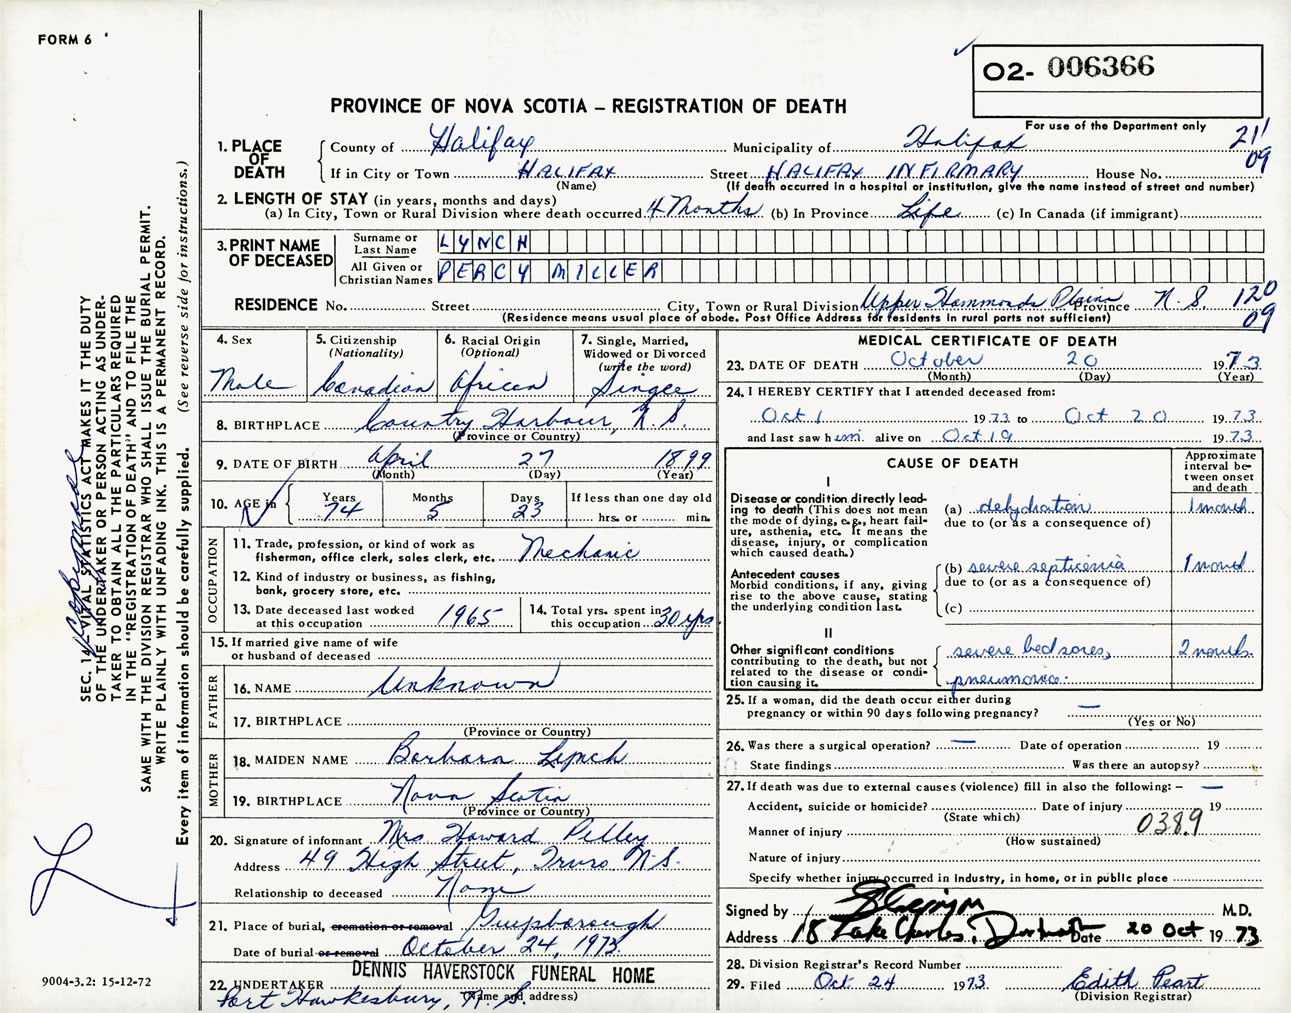 FORM 6
02- 006366
PROVINCE OF NOVA SCOTIA – REGISTRATION OF DEATH
For use of the Department only
21'
09
1. PLACE OF DEATH
County of Halifax Municipality of Halifax
If in City or Town HALIFAX Street HALIFAX INFIRMARY House No.
(Name) (If death occurred in a hospital or institution, give the name instead of street and number)
2. LENGTH OF STAY (in years, months and days)
(a) In City, Town or Rural Division where death occurred 4 Months (b) In Province Life (c) In Canada (if immigrant)
3. PRINT NAME OF DECEASED
Surname or Last Name LYNCH
All Given or Christian Names PERCY MILLER
RESIDENCE No. Street City, Town or Rural Division Upper Hammonds Plains Province N.S. 120
(Residence means usual place of abode. Post Office Address for residents in rural parts not sufficient) 09
4. Sex Male
5. Citizenship (Nationality) Canadian
6. Racial Origin (Optional) African
7. Single, Married, Widowed or Divorced (write the word) Single
8. BIRTHPLACE Country Harbour, N.S.
(Province or Country)
9. DATE OF BIRTH April 27 1899
(Month) (Day) (Year)
10. AGE in Years 74 Months 5 Days 23 If less than one day old hrs. or min.
OCCUPATION
11. Trade, profession, or kind of work as fisherman, office clerk, sales clerk, etc. Mechanic
12. Kind of industry or business, as fishing, bank, grocery store, etc.
13. Date deceased last worked at this occupation 1965
14. Total yrs. spent in this occupation 30 yrs
15. If married give name of wife or husband of deceased
FATHER
16. NAME Unknown
17. BIRTHPLACE
(Province or Country)
MOTHER
18. MAIDEN NAME Barbara Lynch
19. BIRTHPLACE Nova Scotia
(Province or Country)
20. Signature of informant Mrs Howard Pelley
Address 49 High Street, Truro N.S.
Relationship to deceased None
21. Place of burial, cremation or removal Guysborough
Date of burial or removal October 24, 1973
DENNIS HAVERSTOCK FUNERAL HOME
22. UNDERTAKER Port Hawkesbury, N.S.
(Name and address)
MEDICAL CERTIFICATE OF DEATH
23. DATE OF DEATH October 20 1973
(Month) (Day) (Year)
24. I HEREBY CERTIFY that I attended deceased from:
Oct 1 1973 to Oct 20 1973
and last saw him alive on Oct 19 1973
CAUSE OF DEATH
Approximate interval between onset and death
I
Disease or condition directly leading to death (This does not mean the mode of dying, e.g., heart failure, asthenia, etc. It means the disease, injury, or complication which caused death.)
(a) dehydration 1 month
due to (or as a consequence of)
Antecedent causes
Morbid conditions, if any, giving rise to the above cause, stating the underlying condition last.
(b) severe septicemia 1 month
due to (or as a consequence of)
(c)
II
Other significant conditions contributing to the death, but not related to the disease or condition causing it.
severe bed sores, 2 months.
pneumonia.
25. If a woman, did the death occur either during pregnancy or within 90 days following pregnancy? –
(Yes or No)
26. Was there a surgical operation? – Date of operation 19
State findings Was there an autopsy?
27. If death was due to external causes (violence) fill in also the following: – –
Accident, suicide or homicide? Date of injury 19
(State which)
0389
Manner of injury
(How sustained)
Nature of injury
Specify whether injury occurred in industry, in home, or in public place
Signed by M.D.
Address 18 Lake Charles, Dartmouth Date 20 Oct 1973
28. Division Registrar's Record Number
29. Filed Oct 24 1973 Edith Peart
(Division Registrar)
SEC. 14 – VITAL STATISTICS ACT MAKES IT THE DUTY
OF THE UNDERTAKER OR PERSON ACTING AS UNDERTAKER TO OBTAIN ALL THE PARTICULARS REQUIRED
IN THE "REGISTRATION OF DEATH" AND TO FILE THE
SAME WITH THE DIVISION REGISTRAR WHO SHALL ISSUE THE BURIAL PERMIT.
WRITE PLAINLY WITH UNFADING INK. THIS IS A PERMANENT RECORD.
Every item of information should be carefully supplied. (See reverse side for instructions.)
9004-3.2: 15-12-72